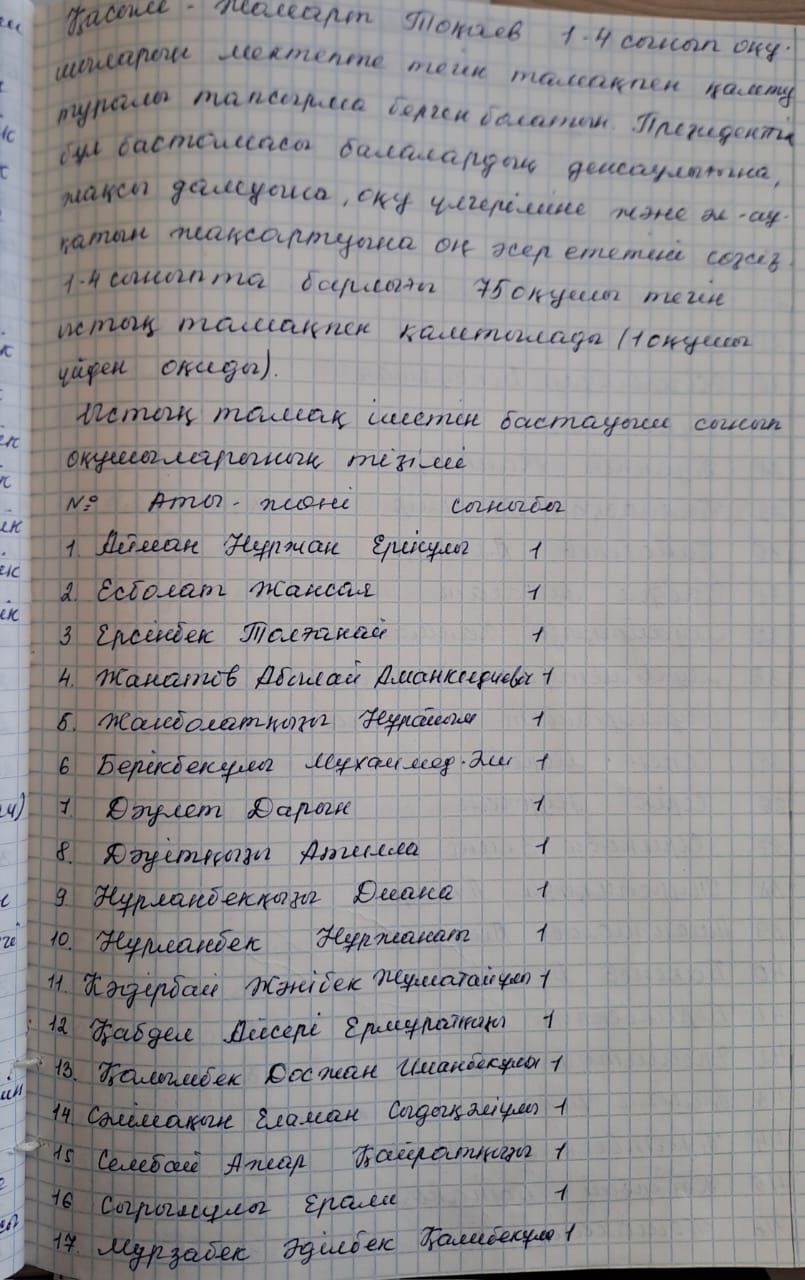 Қасым-Жомарт Тоқаев 1-4 сынып оқу-
шыларын мектепте тегін тамақпен қамту
туралы тапсырма берген болатын. Президенттің
бұл бастамасы балалардың денсаулығына,
жақсы дамуына, оқу үлгеріміне және әл-ау-
қатын жақсартуына оң әсер ететіні сөзсіз.
1-4 сыныпта барлығы 75 оқушы тегін
ыстық тамақпен қамтылады (1 оқушы
үйден оқиды).
Ыстық тамақ ішетін бастауыш сынып
оқушыларының тізімі
№ Аты-жөні сыныбы
1. Айман Нұржан Ерікұлы 1
2. Есболат Жансая 1
3 Ерсінбек Толғанай 1
4. Жанатов Абылай Аманкелдиевич 1
5. Жанболатқызы Нұрайым 1
6 Берікбекұлы Мұхаммед-Әли 1
7. Дәулет Дарын 1
8. Дәуітқызы Атилла 1
9 Нұрланбекқызы Диана 1
10. Нұрланбек Нұржанат 1
11. Кәдірбай Жәнібек Жұматайұлы 1
12 Қабдел Айсері Ермұратқызы 1
13. Қалымбек Досжан Иманбекұлы 1
14 Сәлімақын Еламан Сыдықәліұлы 1
15 Сембай Ажар Қайратқызы 1
16 Сырымұлы Ерәли 1
17. Мұрзабек Әділбек Қалибекұлы 1